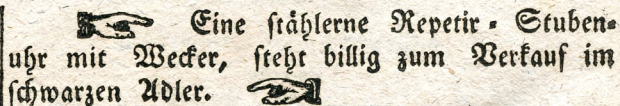 ☞ Eine ſtählerne Repetir - Stuben-
uhr mit Wecker, ſteht billig zum Verkauf im
ſchwarzen Adler. ☜